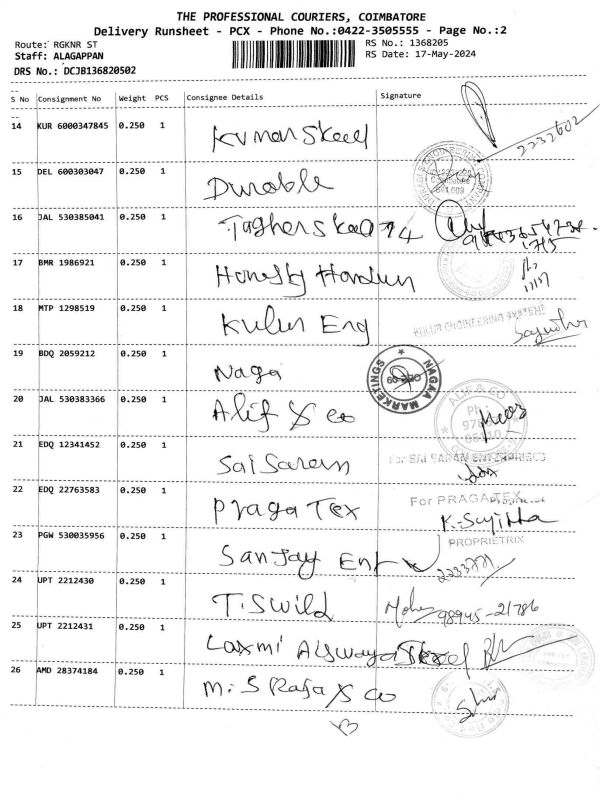 THE PROFESSIONAL COURIERS, COIMBATORE
Delivery Runsheet - PCX - Phone No.:0422-3505555 - Page No.:2
Route: RGKNR ST RS No.: 1368205
Staff: ALAGAPPAN RS Date: 17-May-2024
DRS No.: DCJB136820502
S No Consignment No Weight PCS Consignee Details Signature
14 KUR 6000347845 0.250 1 Kumar Steel 2232602
15 DEL 600303047 0.250 1 Durable
16 JAL 530385041 0.250 1
17 BMR 1986921 0.250 1 Honesty
18 MTP 1298519 0.250 1 Kulur Eng KULUR ENGINEERING SYSTEMS
19 BDQ 2059212 0.250 1 Naga NAGAA MARKETINGS
20 JAL 530383366 0.250 1 Alif & Co ALIF & CO
21 EDQ 12341452 0.250 1 Sai Saram For SAI SARAM ENTERPRISES
22 EDQ 22763583 0.250 1 Praga Tex For PRAGA TEX K. Sujitha
23 PGW 530035956 0.250 1 Sanjay Ent PROPRIETRIX
24 UPT 2212430 0.250 1 T. Swild 98945-21786
25 UPT 2212431 0.250 1 Laxmi
26 AMD 28374184 0.250 1 M. S Raja & Co